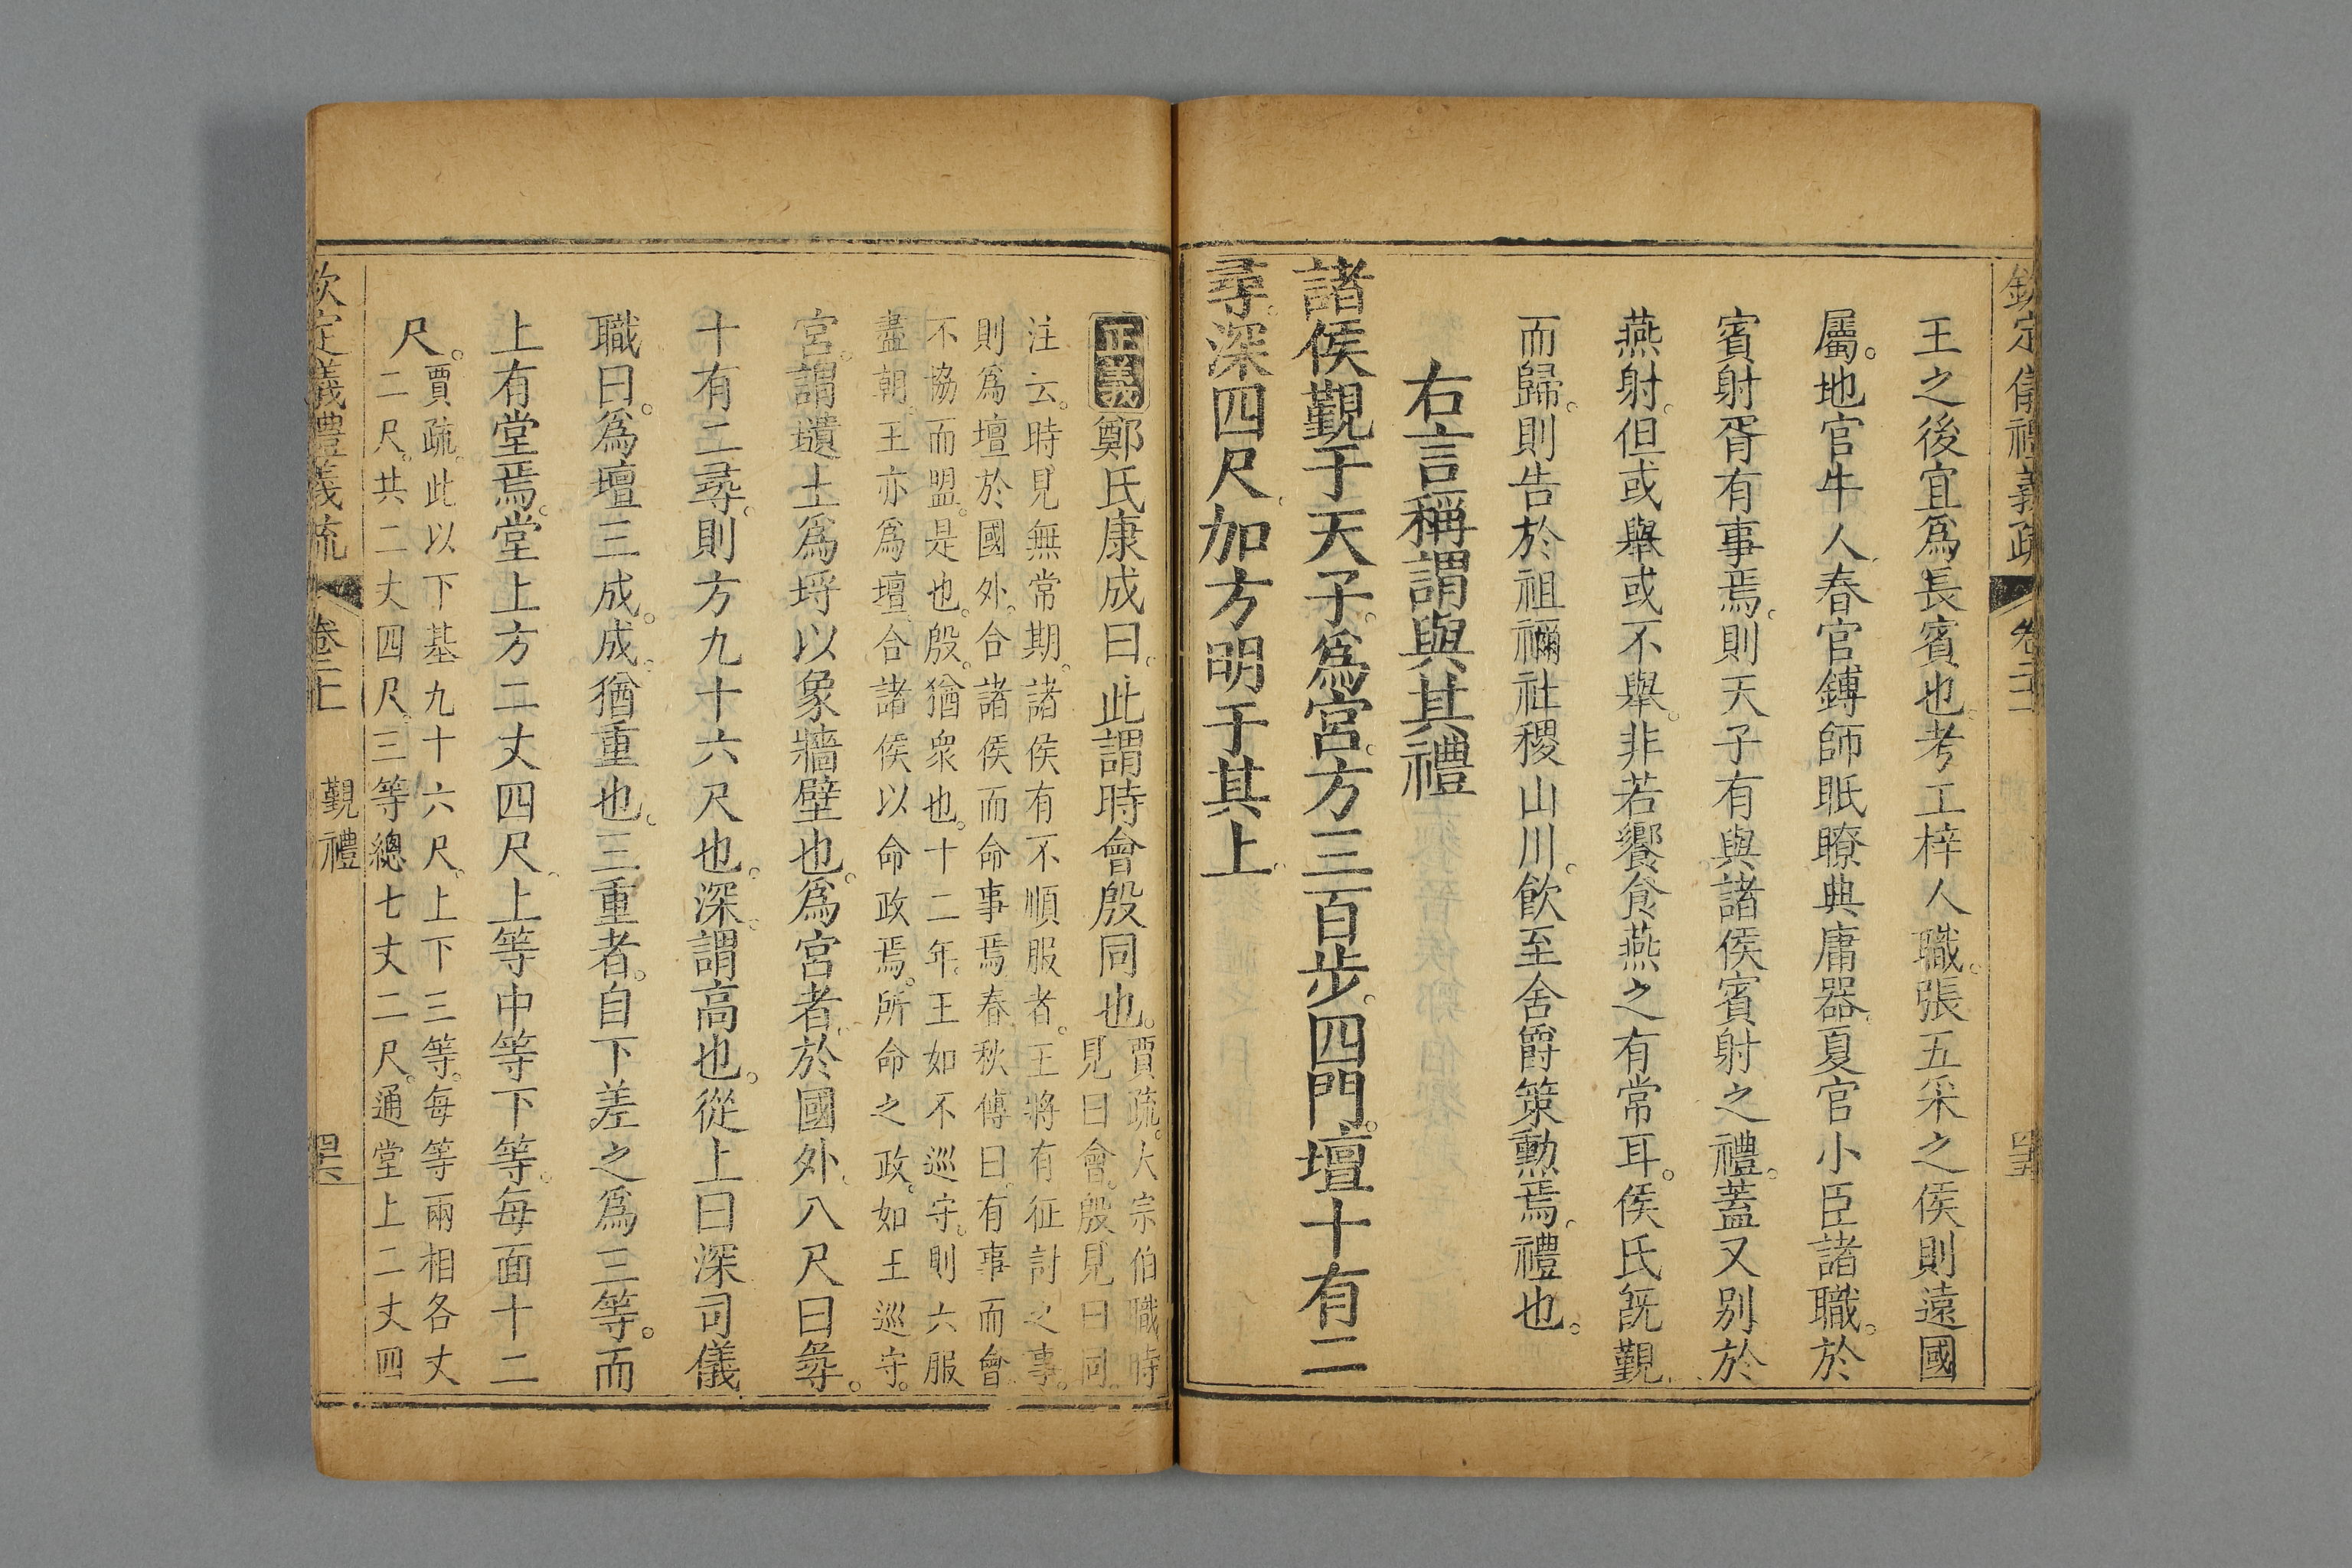 欽定儀禮義疏 卷二十 四十五
王之後宜爲長賓也。考工梓人職。張五采之侯則遠國
屬。地官牛人。春官鎛師眡瞭典庸器。夏官小臣諸職。於
賓射胥有事焉。則天子有與諸侯賓射之禮。蓋又別於
燕射。但或舉或不舉。非若饗食燕之有常耳。侯氏旣覲
而歸。則告於祖禰社稷山川。飮至舍爵策勲焉。禮也。
右言稱謂與其禮
諸侯覲于天子。爲宮。方三百步。四門。壇十有二
尋。深四尺。加方明于其上。
正義鄭氏康成曰。此謂時會殷同也。
賈疏。大宗伯職時
見曰會。殷見曰同。
注云。時見無常期。諸侯有不順服者。王將有征討之事。
則爲壇於國外。合諸侯而命事焉。春秋傳曰。有事而會
不協而盟。是也。殷。猶衆也。十二年。王如不巡守。則六服
盡朝。王亦爲壇。合諸侯以命政焉。所命之政。如王巡守。
宮。謂壝土爲埒以象牆壁也。爲宮者。於國外。八尺曰尋。
十有二尋。則方九十六尺也。深。謂高也。從上曰深司儀
職曰。爲壇三成。成。猶重也。三重者。自下差之爲三等。而
上有堂焉。堂上方二丈四尺。上等中等下等。每面十二
尺。
賈疏。此以下基九十六尺。上下三等。每等兩相各丈
二尺。共二丈四尺。三等總七丈二尺。通堂上二丈四
欽定儀禮義疏 卷二十 覲禮 四十六